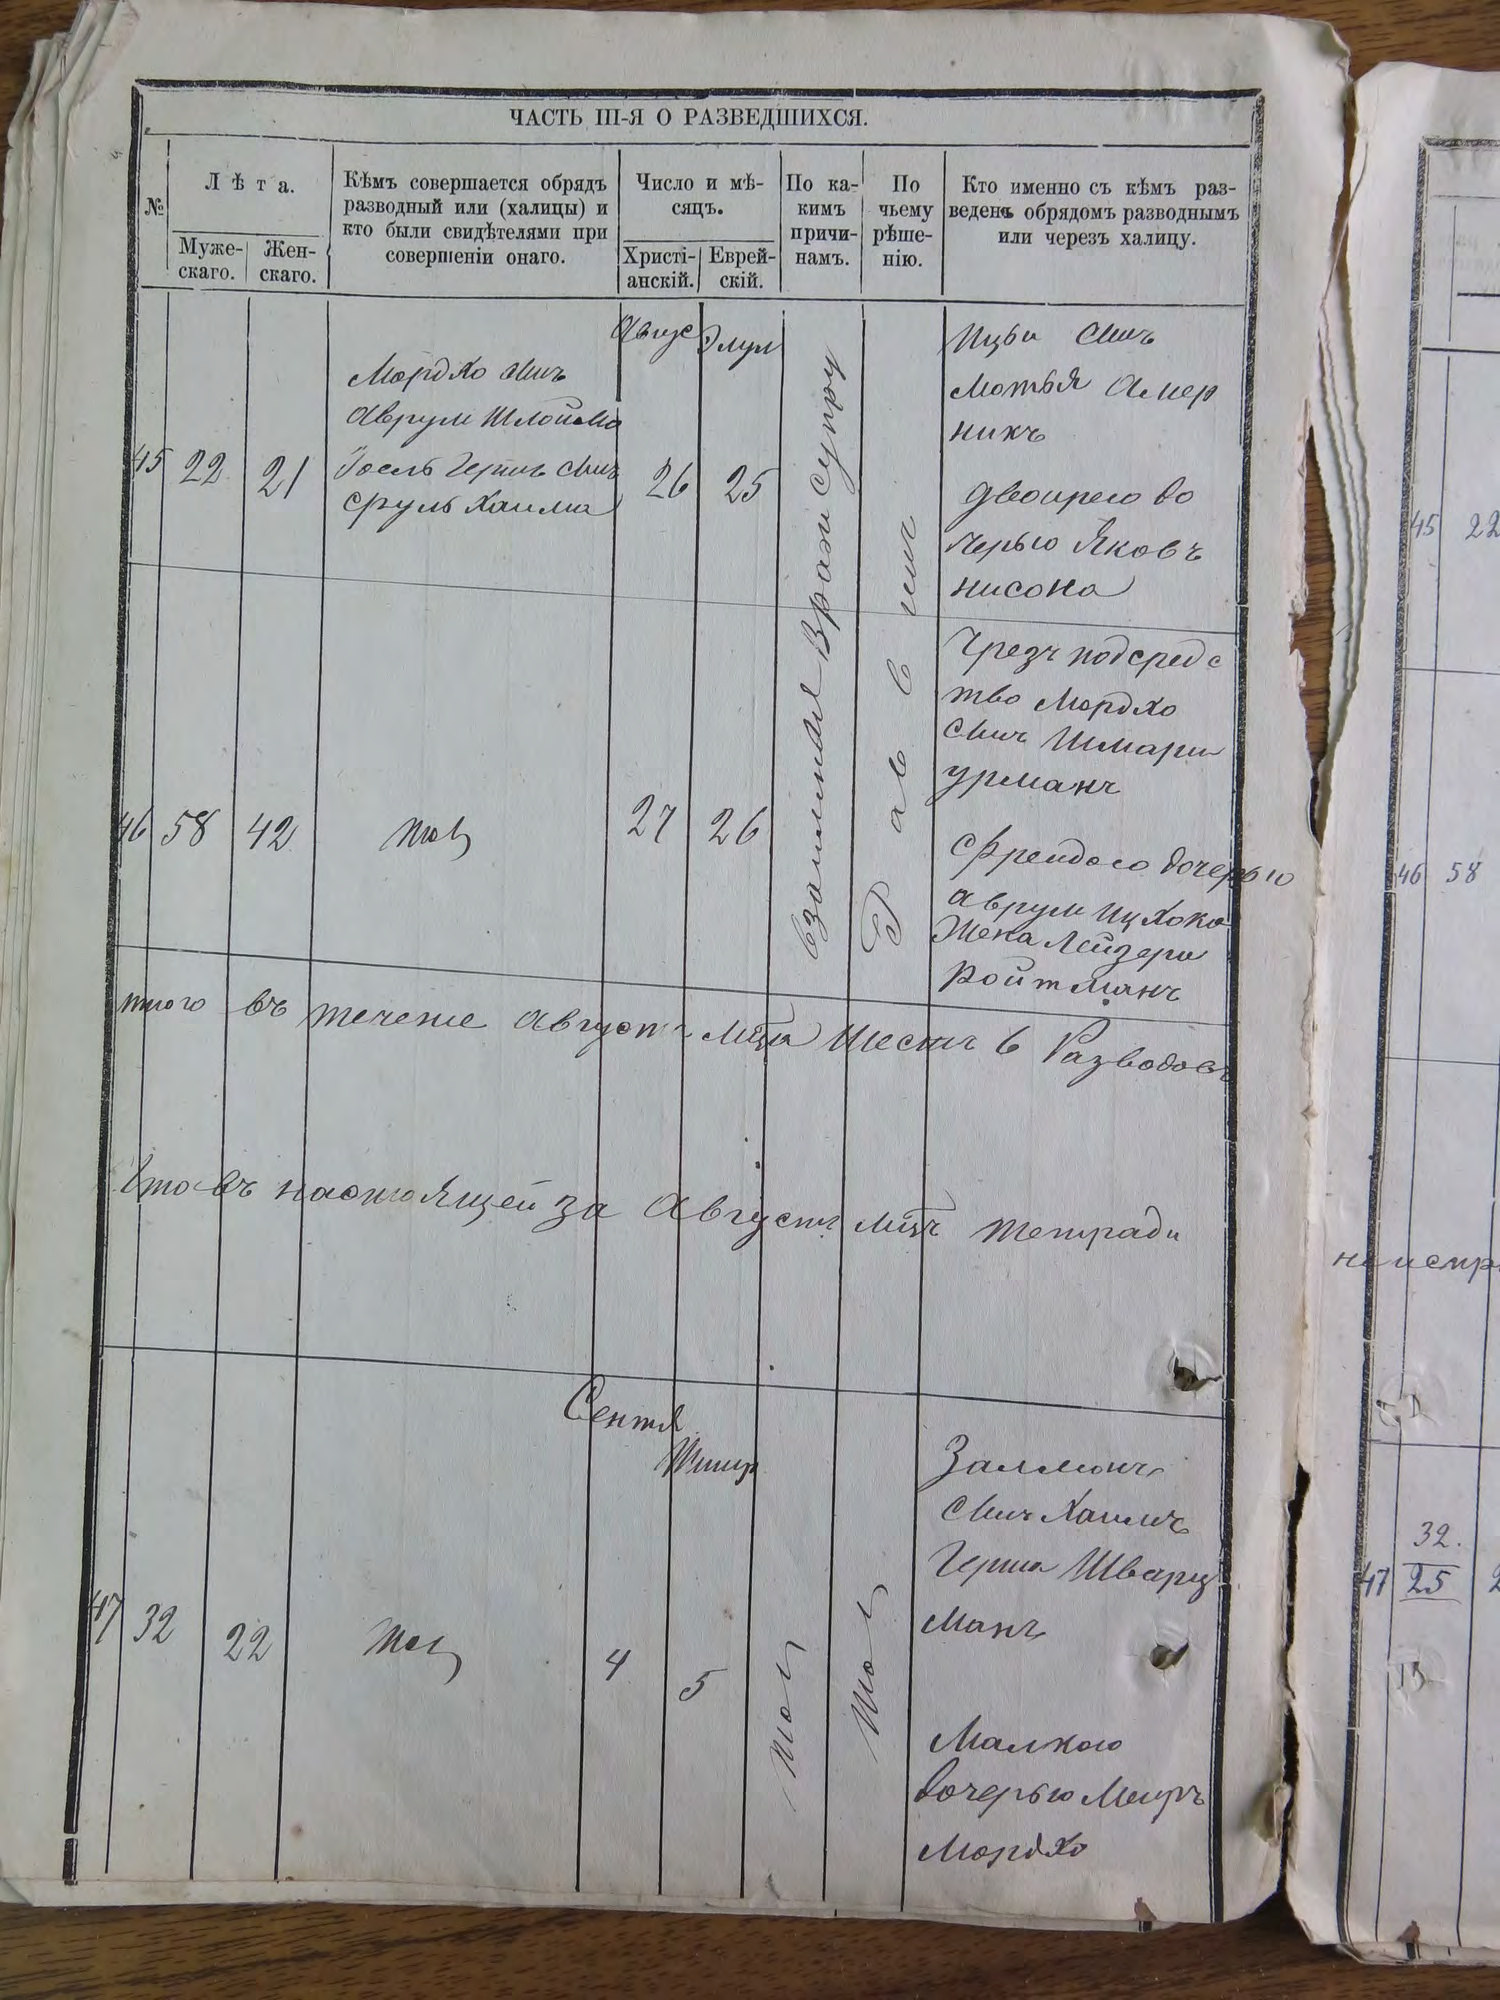 ЧАСТЬ III-Я О РАЗВЕДШИХСЯ.
№
Лѣта.
Муже-
скаго.
Жен-
скаго.
Кѣмъ совершается обрядъ
разводный или (халицы) и
кто были свидѣтелями при
совершеніи онаго.
Число и мѣ-
сяцъ.
Христі-
анскій.
Еврей-
скій.
По ка-
кимъ
причи-
намъ.
По
чьему
рѣше-
нію.
Кто именно съ кѣмъ раз-
веденъ обрядомъ разводнымъ
или черезъ халицу.
45
22
21
Мордхо
Аврум Шлойма
Сруль Хаима
Авгус
26
Элул
25
Взаимная Вражи Супру
Раввин
Мотья Амер
никъ
Двойрею до
черью Яковъ
Нисона
46
58
42
тоц
27
26
Чрезъ подсредс
тво Мордхо
Шмари
Урманъ
Фрейдою дочерью
Аврум Ицхока
Жена Лейзера
Ройтманъ
итого въ течение Августъ мца шесть 6 Разводовъ
настоящей за Августъ мцъ тетради
47
32
22
тоц
Сентя
4
Тишр
5
тоц
тоц
Залманъ
Хаимъ
Герша Шварц
манъ
Малкою
дочерью Меиръ
Мордхо
45
22
46
58
32.
47
25